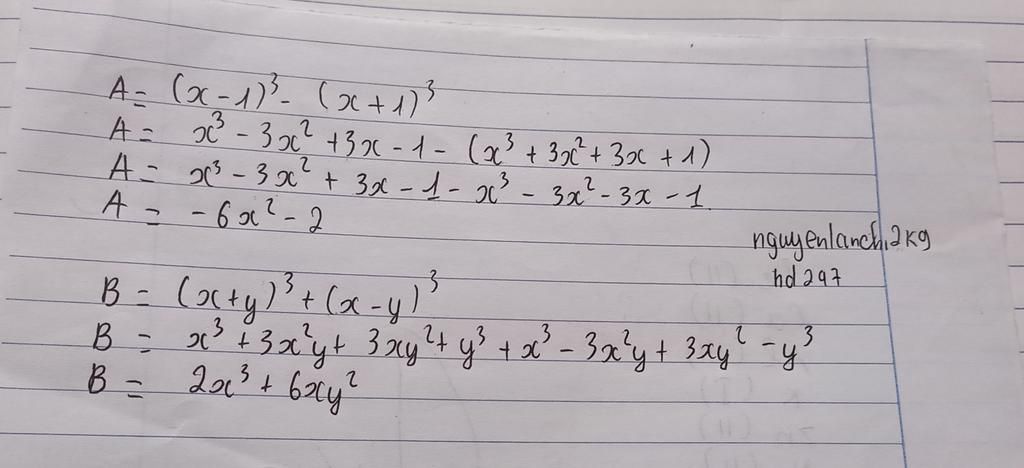 A = (x - 1)³ - (x + 1)³
A = x³ - 3x² + 3x - 1 - (x³ + 3x² + 3x + 1)
A = x³ - 3x² + 3x - 1 - x³ - 3x² - 3x - 1
A = - 6x² - 2
nguyenlanch.2kg
hd297
B = (x+y)³ + (x - y)³
B = x³ + 3x²y + 3xy² + y³ + x³ - 3x²y + 3xy² - y³
B = 2x³ + 6xy²